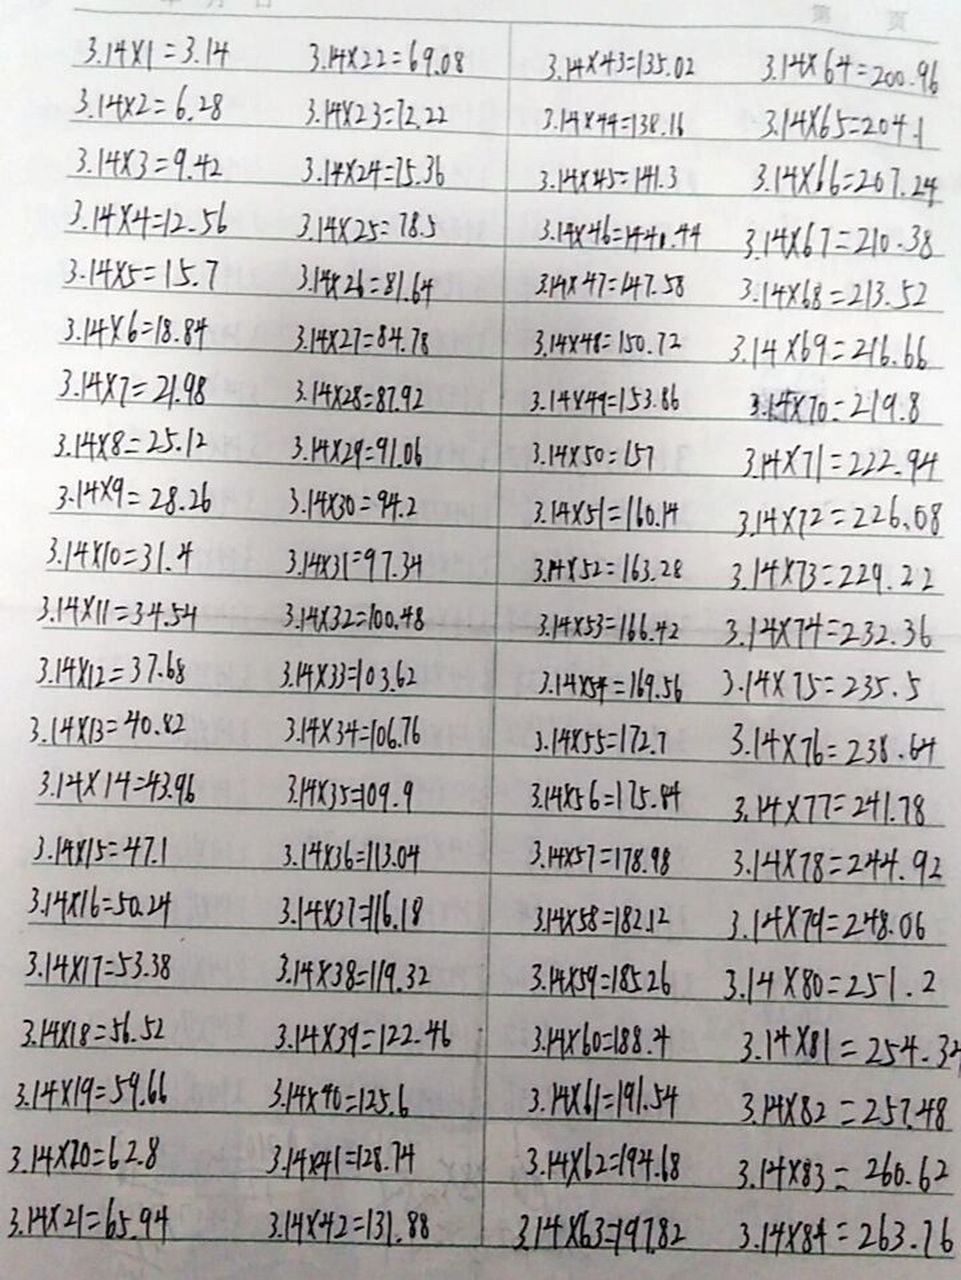 年 月 日
第 页
3.14×1=3.14
3.14×2=6.28
3.14×3=9.42
3.14×4=12.56
3.14×5=15.7
3.14×6=18.84
3.14×7=21.98
3.14×8=25.12
3.14×9=28.26
3.14×10=31.4
3.14×11=34.54
3.14×12=37.68
3.14×13=40.82
3.14×14=43.96
3.14×15=47.1
3.14×16=50.24
3.14×17=53.38
3.14×18=56.52
3.14×19=59.66
3.14×20=62.8
3.14×21=65.94
3.14×22=69.08
3.14×23=72.22
3.14×24=75.36
3.14×25=78.5
3.14×26=81.64
3.14×27=84.78
3.14×28=87.92
3.14×29=91.06
3.14×30=94.2
3.14×31=97.34
3.14×32=100.48
3.14×33=103.62
3.14×34=106.76
3.14×35=109.9
3.14×36=113.04
3.14×37=116.18
3.14×38=119.32
3.14×39=122.46
3.14×40=125.6
3.14×41=128.74
3.14×42=131.88
3.14×43=135.02
3.14×44=138.16
3.14×45=141.3
3.14×47=147.58
3.14×48=150.72
3.14×49=153.86
3.14×50=157
3.14×51=160.14
3.14×52=163.28
3.14×53=166.42
3.14×54=169.56
3.14×55=172.7
3.14×56=175.84
3.14×57=178.98
3.14×58=182.12
3.14×59=185.26
3.14×60=188.4
3.14×61=191.54
3.14×62=194.68
3.14×63=197.82
3.14×64=200.96
3.14×65=204.1
3.14×66=207.24
3.14×67=210.38
3.14×68=213.52
3.14×69=216.66
3.14×70=219.8
3.14×71=222.94
3.14×72=226.08
3.14×73=229.22
3.14×74=232.36
3.14×75=235.5
3.14×76=238.64
3.14×77=241.78
3.14×78=244.92
3.14×79=248.06
3.14×80=251.2
3.14×81=254.34
3.14×82=257.48
3.14×83=260.62
3.14×84=263.76